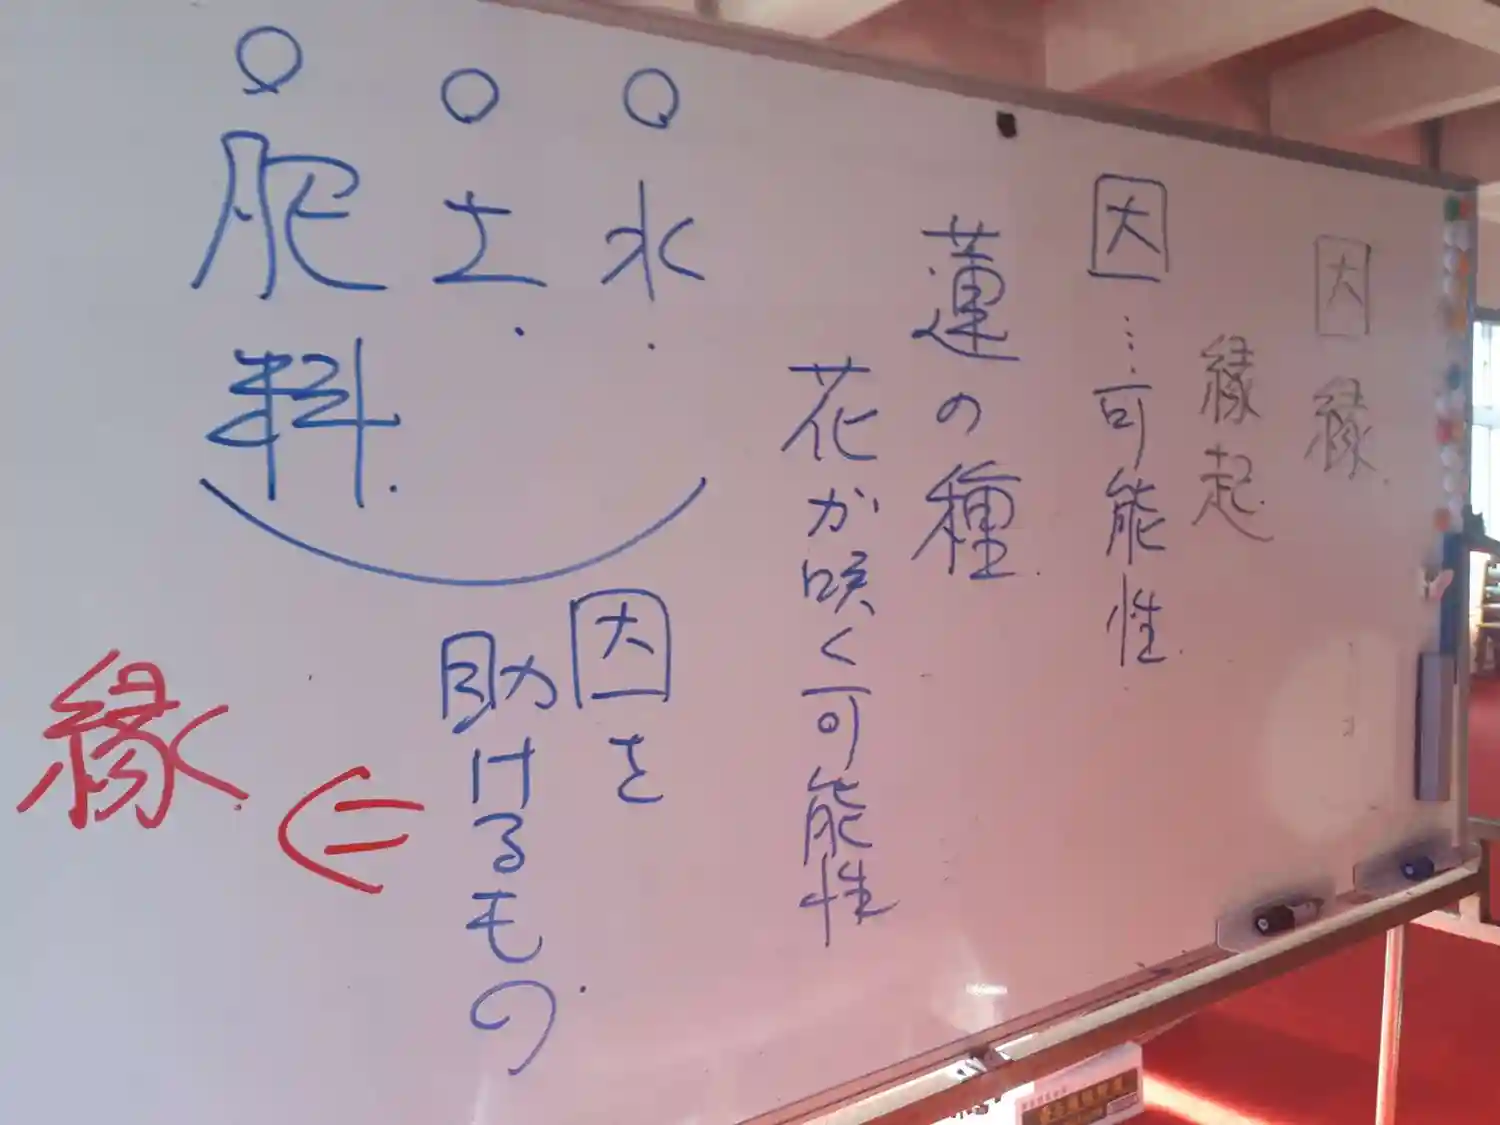 因縁
縁起
因…可能性
蓮の種
花が咲く可能性
水
土
肥料
因を
助けるもの
縁